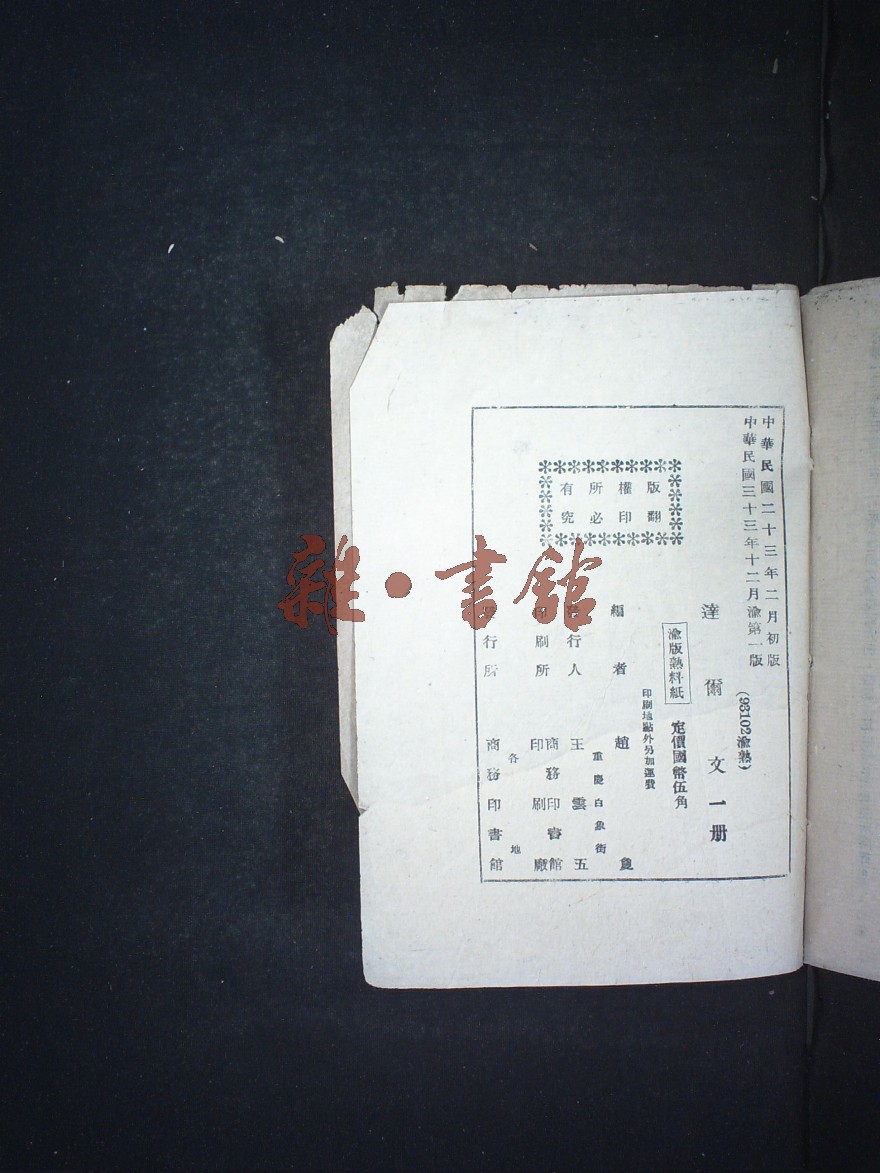 中華民國二十三年二月初版
中華民國三十三年十二月渝第一版
(93102渝熟)
達爾文一册
渝版熟料紙
定價國幣伍角
印刷地點外另加運費
編者 趙
重慶白象街
發行人 王雲五
印刷所 商務印書館印刷廠
發行所 各地商務印書館
版權所有
翻印必究
雜·書館